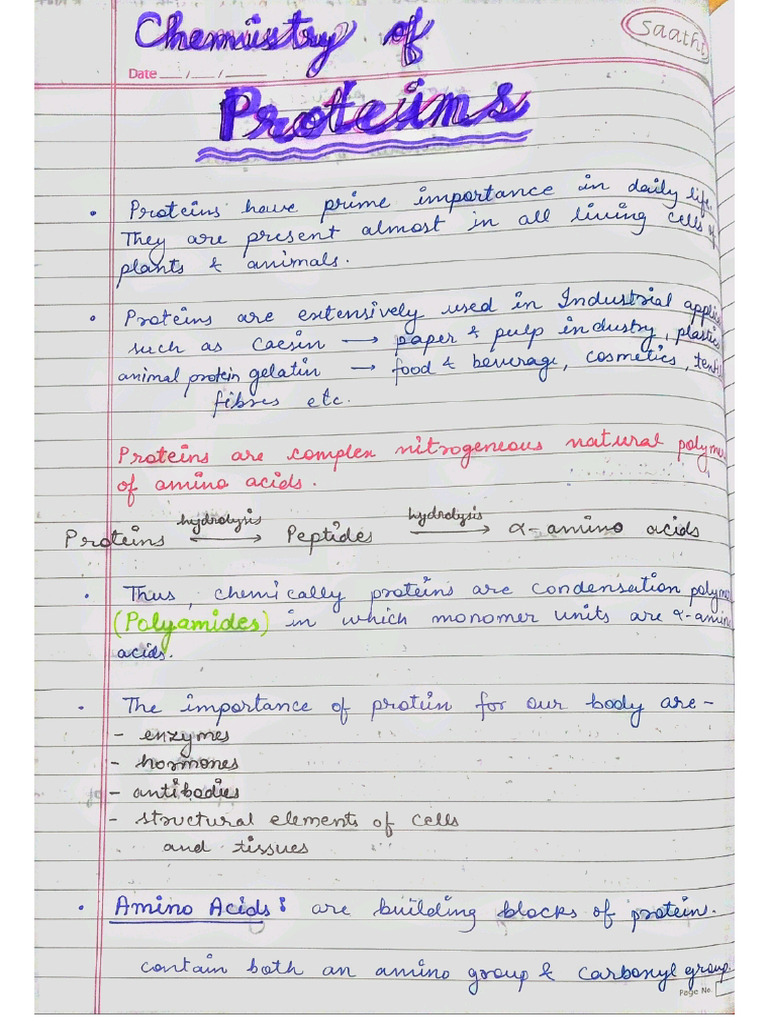 Chemistry of
Saathi
Date ___ / ___ / ______
Proteins
• Proteins have prime importance in daily life.
They are present almost in all living cells of
plants & animals.
• Proteins are extensively used in Industrial applic
such as Caesin → paper & pulp industry, plastics
animal protein gelatin → food & beverage, cosmetics,
fibres etc.
Proteins are complex nitrogeneous natural polymer
of amino acids.
Proteins hydrolysis → Peptides hydrolysis → α-amino acids
• Thus, chemically proteins are condensation polyme
(Polyamides) in which monomer units are α-amino
acids.
• The importance of protein for our body are -
- enzymes
- hormones
- antibodies
- structural elements of cells
and tissues
• Amino Acids : are building blocks of protein.
contain both an amino group & carbonyl group.
Page No.